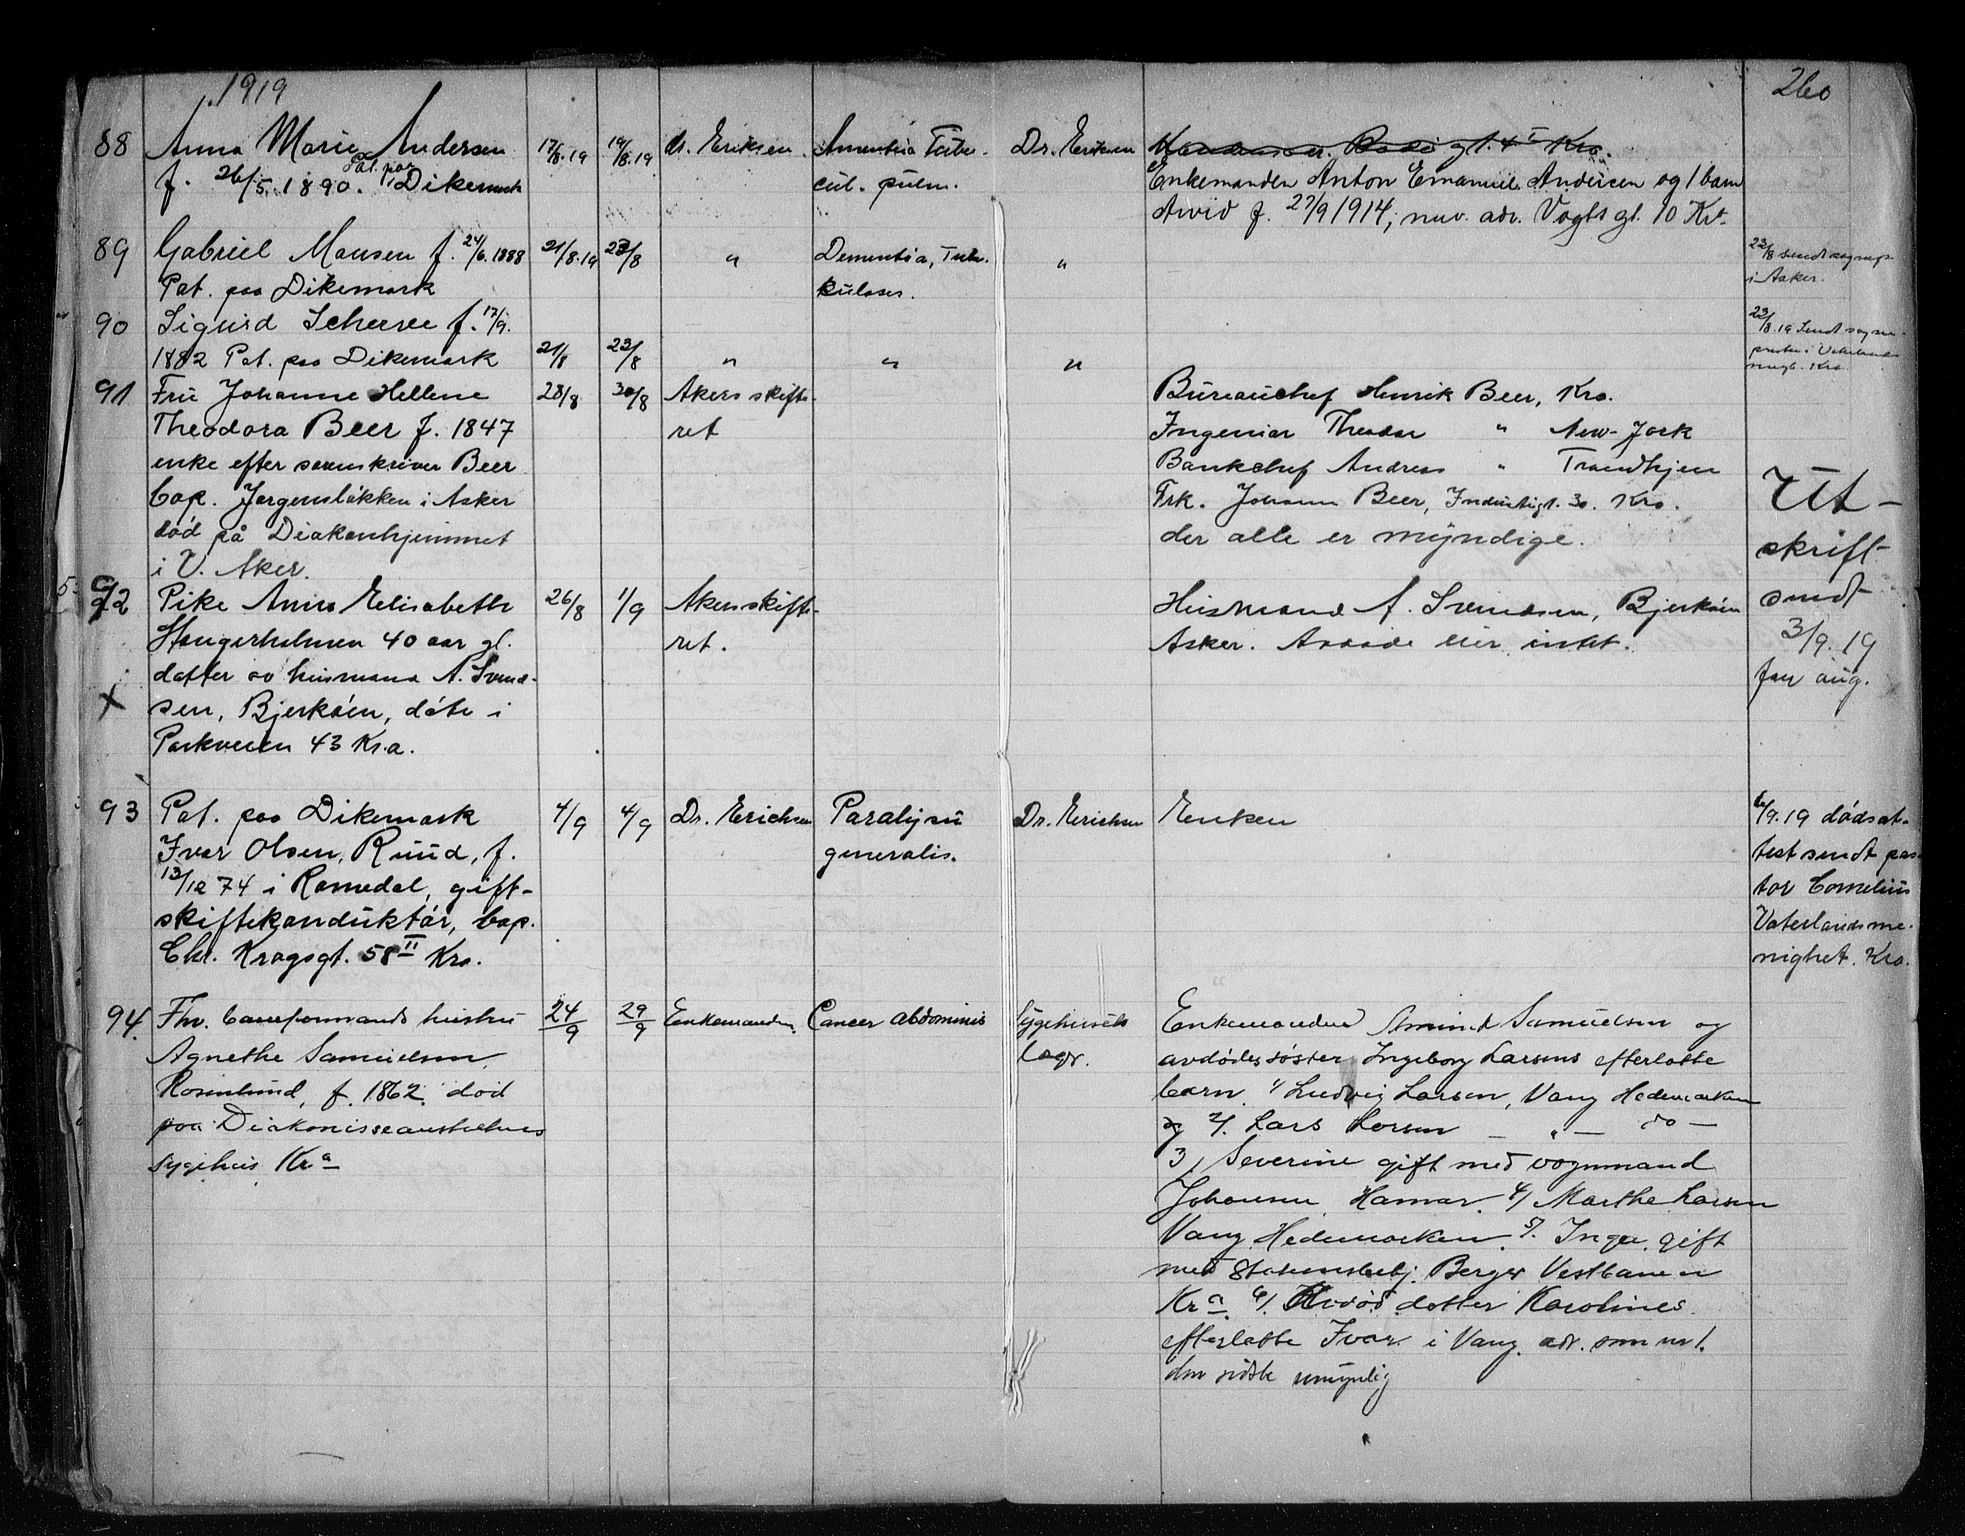 1919
260
88
Anna Marie Andersen
f. 26/5 1890. Pat. paa Dikemark
17/8.19
19/8.19
dr. Eriksen
Amentia Tuber-
cul. pulm.
Dr. Eriksen
gt. 4 I Kra.
Enkemanden Anton Emanuel Andersen og 1 barn
Arvid f. 27/9 1914, nuv. adr. Vogts gt. 10 Kra.
89
Gabriel Monsen f. 24/6.1888
Pat. paa Dikemark
21/8.19
23/8
"
Dementia, Tuber-
kuloses.
"
23/8 sendt sognep.
i Asker.
90
Sigurd f. 17/9.
1882 Pat. paa Dikemark
21/8
23/8
"
"
"
23/8.19 Sendt sogne-
presten i Vaterlands
menigh. Kra
91
Frue Johanne Hellene
Theodora Beer f. 1847
enke efter sorenskriver Beer
bop. Jørgensløkken i Asker
død på Diakonhjemmet
i V. Aker.
28/8
30/8
Akers skifte-
ret
Bureauchef Henrik Beer, Kra.
Ingeniør Theodor " New-York
Bankchef Andreas " Trondhjem
Frk. Johanne Beer, Industrigt. 30. Kra.
der alle er myndige.
Ut-
skrift
sendt
3/9.19
for aug.
92
Pike Anna Elisabeth
Haugerholmen 40 aar gl.
datter av husmand A. Svend-
sen, Bjerkåsen, døde i
Parkveien 43 Kr.a.
X
26/8
1/9
Akers skifte-
ret.
Husmand A. Svendsen, Bjerkåsen
Asker. Avdøde eier intet.
93
Pat. paa Dikemark
Ivar Olsen, Ruud, f.
13/12 74 i Romedal, gift-
skiftekonduktør, bop.
Chr. Krogsgt. 58 II Kra.
4/9
4/9
Dr. Erichsen
Paralysis
generalis.
Dr. Erichsen
Enken
6/9.19 dødsat-
test sendt pas-
tor Cornelius
Vaterlandsme-
nighet. Kra.
94.
Fhv. baneformands hustru
Agnethe Samuelsen
Rosenlund, f. 1862. død
paa Diakonisseanstaltens
sygehus Kra
24/9
29/9
Enkemanden
Cancer abdominis
Sygehusets
læge.
Enkemanden Amund Samuelsen og
avdødes søster Ingeborg Larsens efterlatte
barn 1/ Ludvig Larsen, Vang Hedemarken
og 2/. Lars Larsen — " — do —
3/ Severine gift med vognmand
Johansen Hamar. 4/ Marthe Larsen
Vang Hedemarken. 5/. Inga gift
med Stationsbetj. Berger Vestbanen
Kra 6/. Avdød datter Karolines
efterlatte Ivar i Vang. adr. som nr 1.
den sidste umyndig